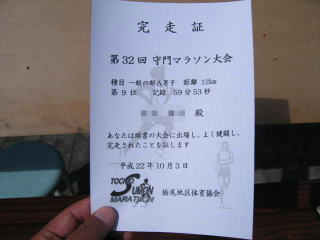 完走証
第32回 守門マラソン大会
種目 一般の部A男子 距離 12km
第9位 記録 59分53秒
殿
あなたは頭書の大会に出場し、よく健闘し、
完走されたことを証します
平成22年10月3日
TOCHIO
SUMON
MARATHON
栃尾地区体育協会